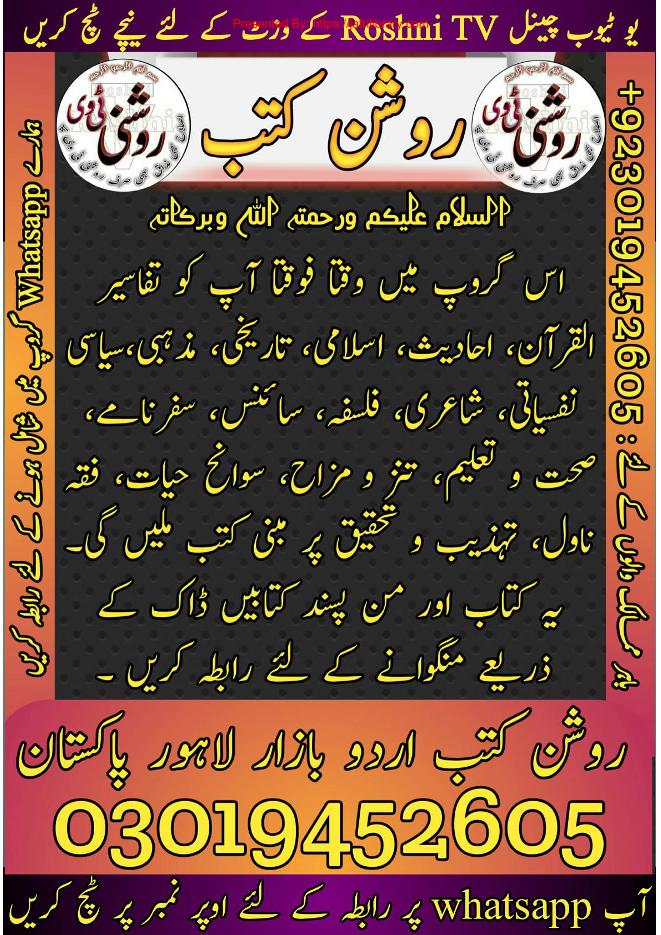 یو ٹیوب چینل Roshni TV کے وزٹ کے لئے نیچے ٹچ کریں
Presented By: https://
روشن کتب
روشنی ٹی وی
روشنی ٹی وی
السلام علیکم ورحمتہ اللہ وبرکاتہ
اس گروپ میں وقتا فوقتا آپ کو تفاسیر
القرآن، احادیث، اسلامی، تاریخی، مذہبی،سیاسی
نفسیاتی، شاعری، فلسفہ، سائنس، سفرنامے،
صحت و تعلیم، تنز و مزاح، سوانح حیات، فقہ
ناول، تہذیب و تحقیق پر مبنی کتب ملیں گی۔
یہ کتاب اور من پسند کتابیں ڈاک کے
ذریعے منگوانے کے لئے رابطہ کریں ۔
ہمارے Whatsapp گروپ میں شامل ہونے کے لئے رابطہ کریں
ہر مسلک والوں کے لئے : +923019452605
روشن کتب اردو بازار لاہور پاکستان
03019452605
آپ whatsapp پر رابطہ کے لئے اوپر نمبر پر ٹچ کریں